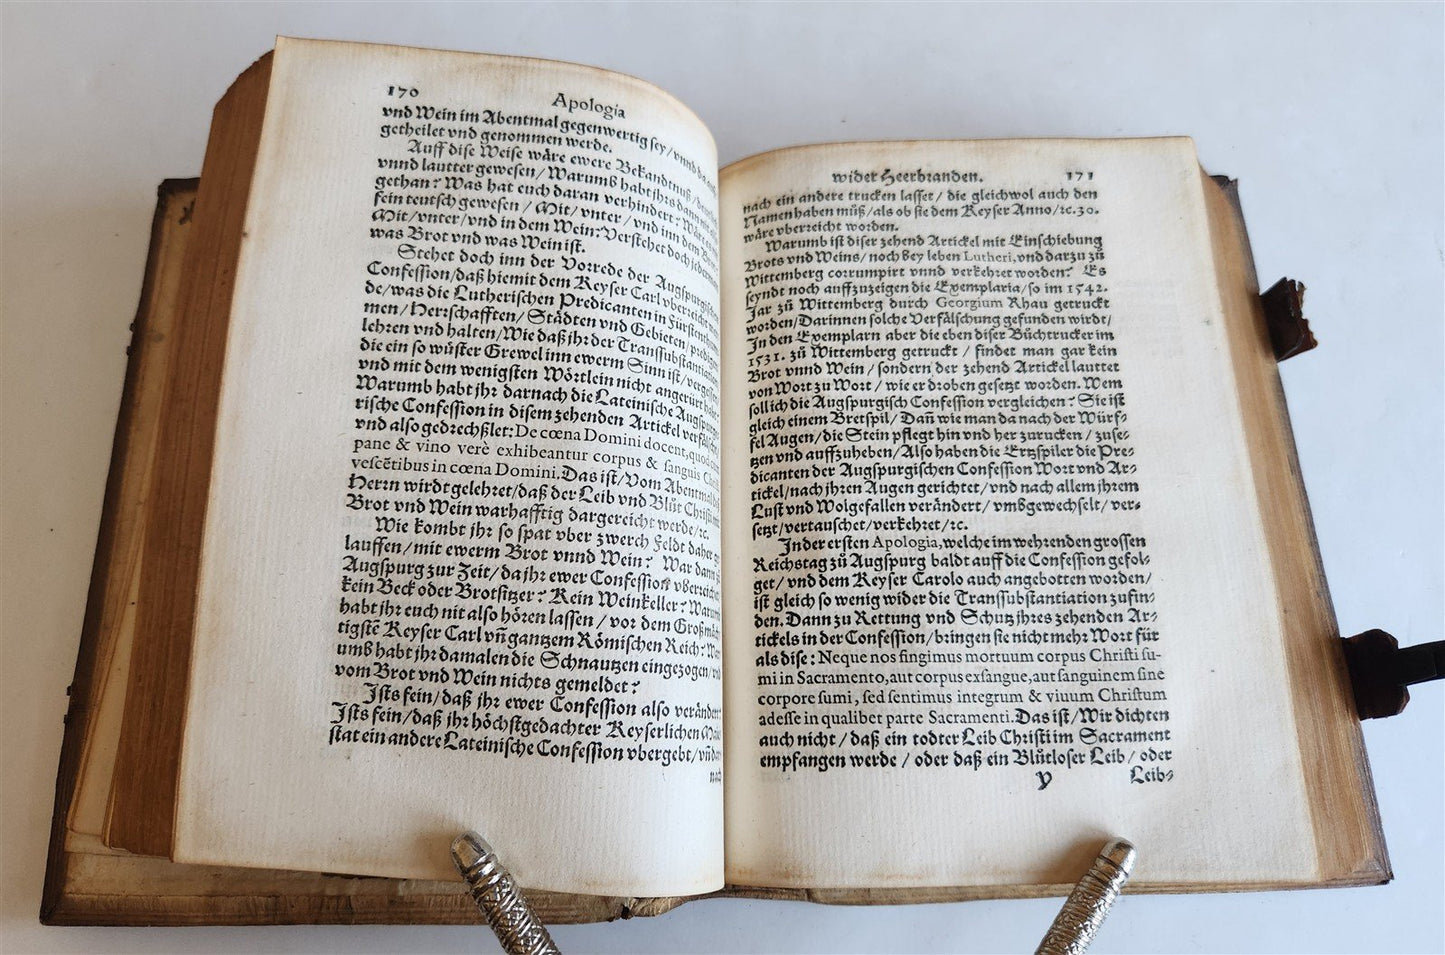 170
Apologia
vnd Wein im Abentmal gegenwertig sey / vnnd
getheilet vnd genommen werde.
Auff dise Weise wåre ewere Bekandtnuß /
vnnd lautter gewesen / Warumb habt jhrs dann
gethan? Was hat euch daran verhindert? Wåre
fein teutsch gewesen / Mit / vnter / vnd inn dem
Mit / vnter / vnd in dem Wein: Verstehet doch jederman
was Brot vnd was Wein ist.
Stehet doch inn der Vorrede der Augspurgischen
Confession / daß hiemit dem Keyser Carl vberreicht
de / was die Lutherischen Predicanten in Fürstenthu-
men / Herrschafften / Städten vnd Gebieten / predigen
lehren vnd halten / Wie daß jhr der Transsubstantiation
die ein so wůster Grewel inn ewerm Sinn ist / vergessen
vnd mit dem wenigsten Wörtlein nicht angerürt habt?
Warumb habt jhr darnach die Lateinische Augspur-
rische Confession in disem zehenden Artickel verfälscht
vnd also gedrechßlet: De cœna Domini docent, quod cum
pane & vino verè exhibeantur corpus & sanguis Christi
vescẽtibus in cœna Domini. Das ist / Vom Abentmal deß
Herrn wirdt gelehret / daß der Leib vnd Blůt Christi mit
Brot vnd Wein warhafftig dargereicht werde / ꝛc.
Wie kombt jhr so spat vber zwerch Feldt daher ge-
lauffen / mit ewerm Brot vnnd Wein? War dann zu
Augspurg zur Zeit / da jhr ewer Confession vberreichet
kein Beck oder Brotsitzer? Kein Weinkeller? Warumb
habt jhr euch nit also hören lassen / vor dem Großmåch-
tigstẽ Keyser Carl vñ gantzem Römischen Reich? War-
umb habt jhr damalen die Schnautzen eingezogen / vnd
vom Brot vnd Wein nichts gemeldet?
Ists fein / daß jhr ewer Confession also verändert?
Ists fein / daß jhr höchstgedachter Keyserlichen Maie-
stat ein andere Lateinische Confession vbergebt / vñ dar-
nach
wider Heerbranden.
171
nach ein andere trucken lasset / die gleichwol auch den
Namen haben můß / als ob sie dem Keyser Anno / ꝛc. 30.
wåre vberreicht worden.
Warumb ist diser zehend Artickel mit Einschiebung
Brots vnd Weins / noch bey leben Lutheri, vnd darzu zů
Wittemberg corrumpirt vnnd verkehret worden? Es
seyndt noch auffzuzeigen die Exemplaria / so im 1542.
Jar zů Wittemberg durch Georgium Rhau getruckt
worden / Darinnen solche Verfålschung gefunden wirdt /
In den Exemplarn aber die eben diser Bůchtrucker im
1531. zů Wittemberg getruckt / findet man gar kein
Brot vnnd Wein / sondern der zehend Artickel lauttet
von Wort zu Wort / wie er droben gesetzt worden. Wem
soll ich die Augspurgisch Confession vergleichen? Sie ist
gleich einem Bretspil / Dañ wie man da nach der Würf-
fel Augen / die Stein pflegt hin vnd her zurucken / zuse-
tzen vnd auffzuheben / Also haben die Ertzspiler die Pre-
dicanten der Augspurgischen Confession Wort vnd Ar-
tickel / nach jhren Augen gerichtet / vnd nach allem jhrem
Lust vnd Wolgefallen verändert / vmbgewechselt / ver-
setzt / vertauschet / verkehret / ꝛc.
In der ersten Apologia, welche im wehrenden grossen
Reichstag zů Augspurg baldt auff die Confession gefol-
get / vnd dem Keyser Carolo auch angebotten worden /
ist gleich so wenig wider die Transsubstantiation zufin-
den. Dann zu Rettung vnd Schutz jhres zehenden Ar-
tickels in der Confession / bringen sie nicht mehr Wort für
als dise: Neque nos fingimus mortuum corpus Christi su-
mi in Sacramento, aut corpus exsangue, aut sanguinem sine
corpore sumi, sed sentimus integrum & viuum Christum
adesse in qualibet parte Sacramenti. Das ist / Wir dichten
auch nicht / daß ein todter Leib Christi im Sacrament
empfangen werde / oder daß ein Blůtloser Leib / oder
Y
Leib-